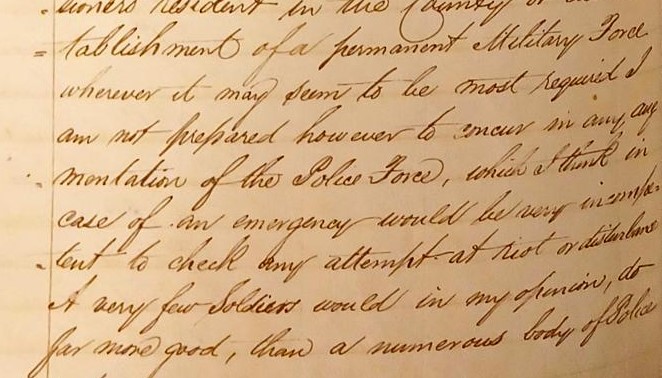 -sioners resident in the County or
=tablishment of a permanent Military Force
wherever it may seem to be most required I
am not prepared however to concur in any aug
-mentation of the Police Force, which I think in
case of an emergency would be very incompe-
-tent to check any attempt at Riot or disturbance
A very few Soldiers would in my opinion, do
far more good, than a numerous body of Police